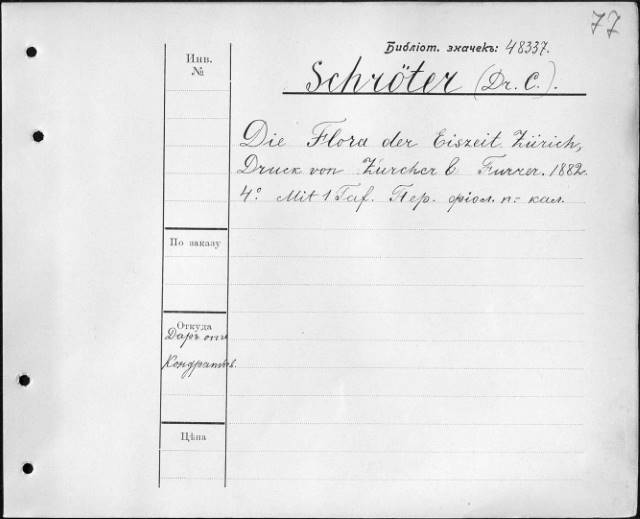 77
Библіот. значекъ: 48337.
Инв. №
Schröter (Dr. C.).
Die Flora der Eiszeit. Zürich,
Druck von Zürcher & Furrer. 1882.
4° Mit 1 Taf. Пер. фіол. п: кал.
По заказу
Откуда
Даръ отъ
Цѣна